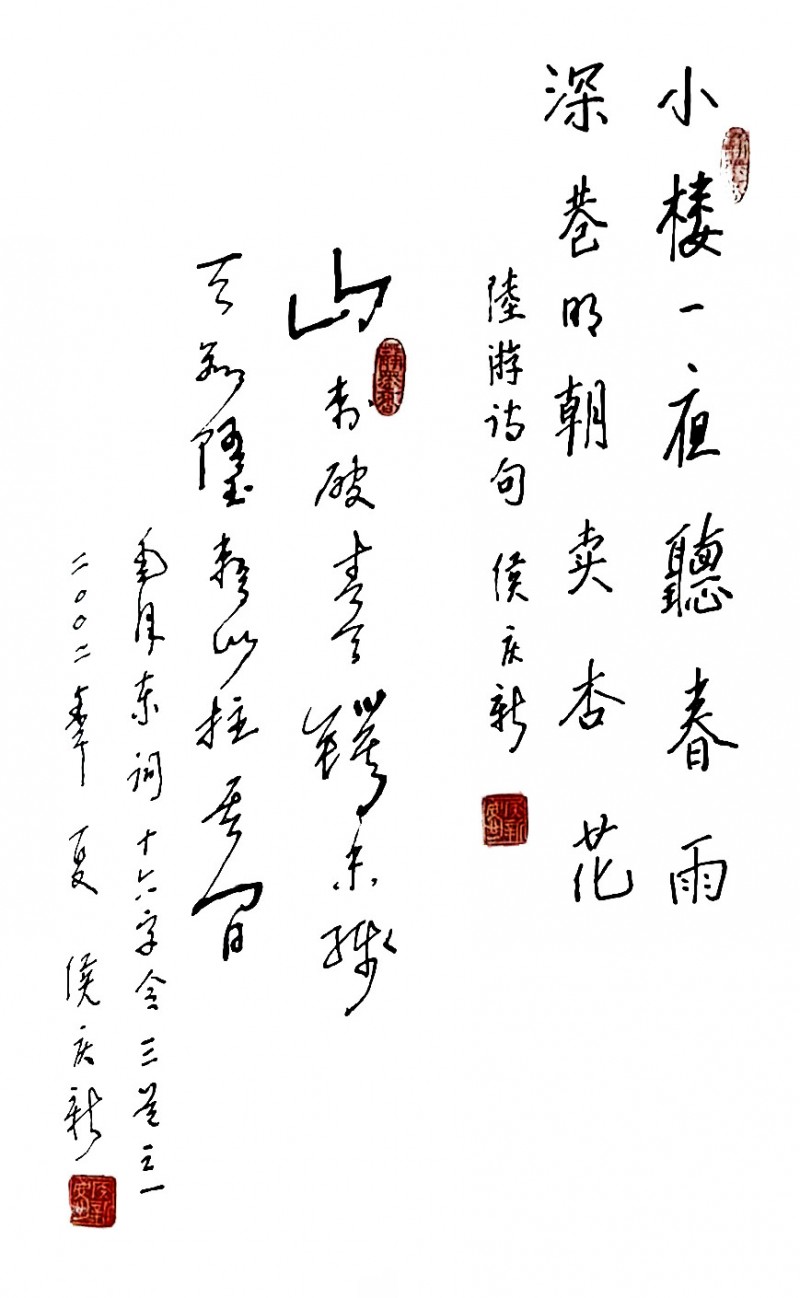 小楼一夜聽春雨
深巷明朝卖杏花
陸游诗句 侯庆新
山刺破青天锷未残
天欲墮赖以拄其间
毛泽东词十六字令三首之一
二〇〇二年夏 侯庆新